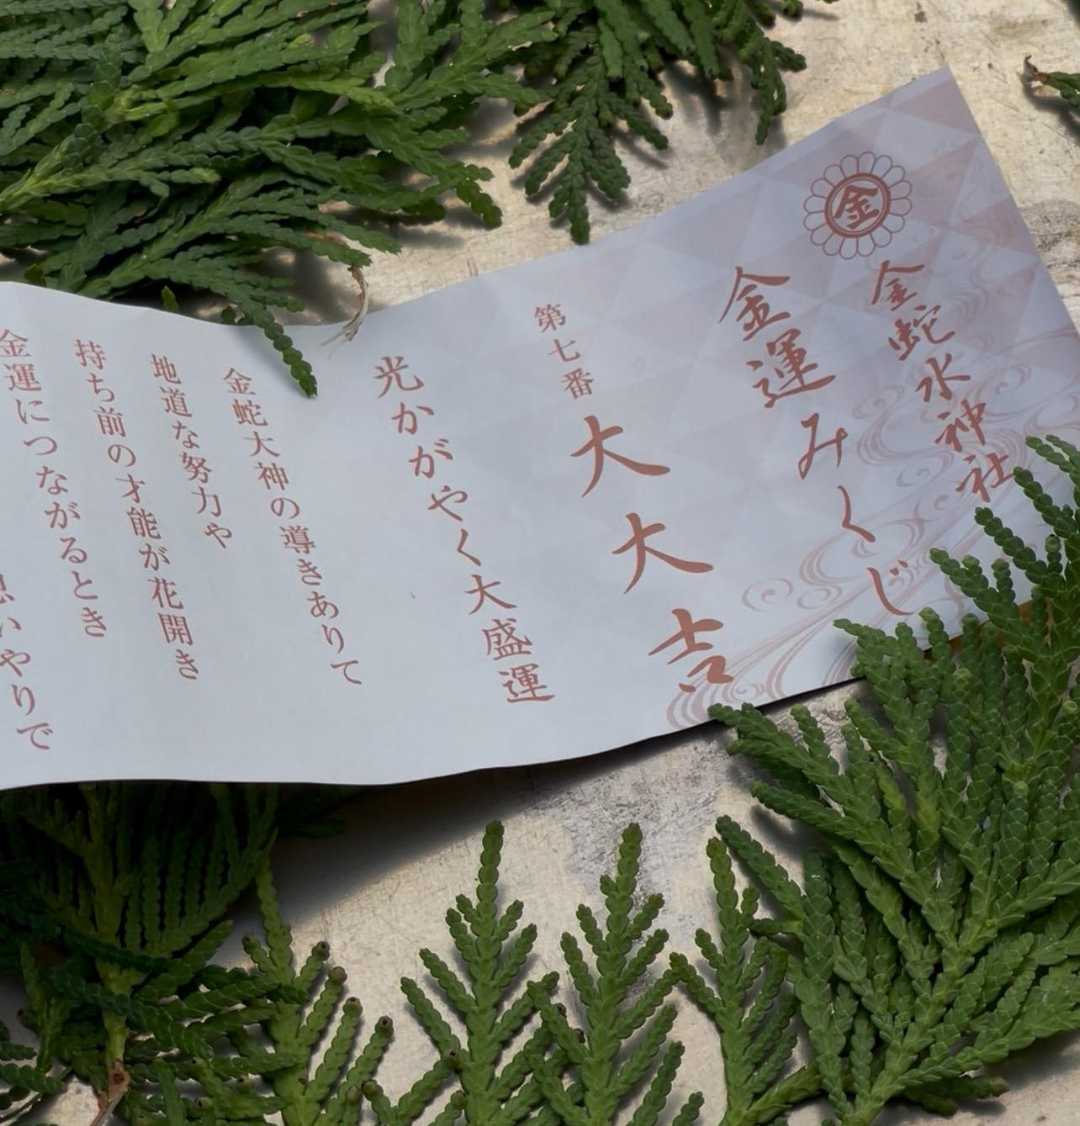 金
金蛇水神社
金運みくじ
第七番
大大吉
光かがやく大盛運
金蛇大神の導きありて
地道な努力や
持ち前の才能が花開き
金運につながるとき
思いやりで